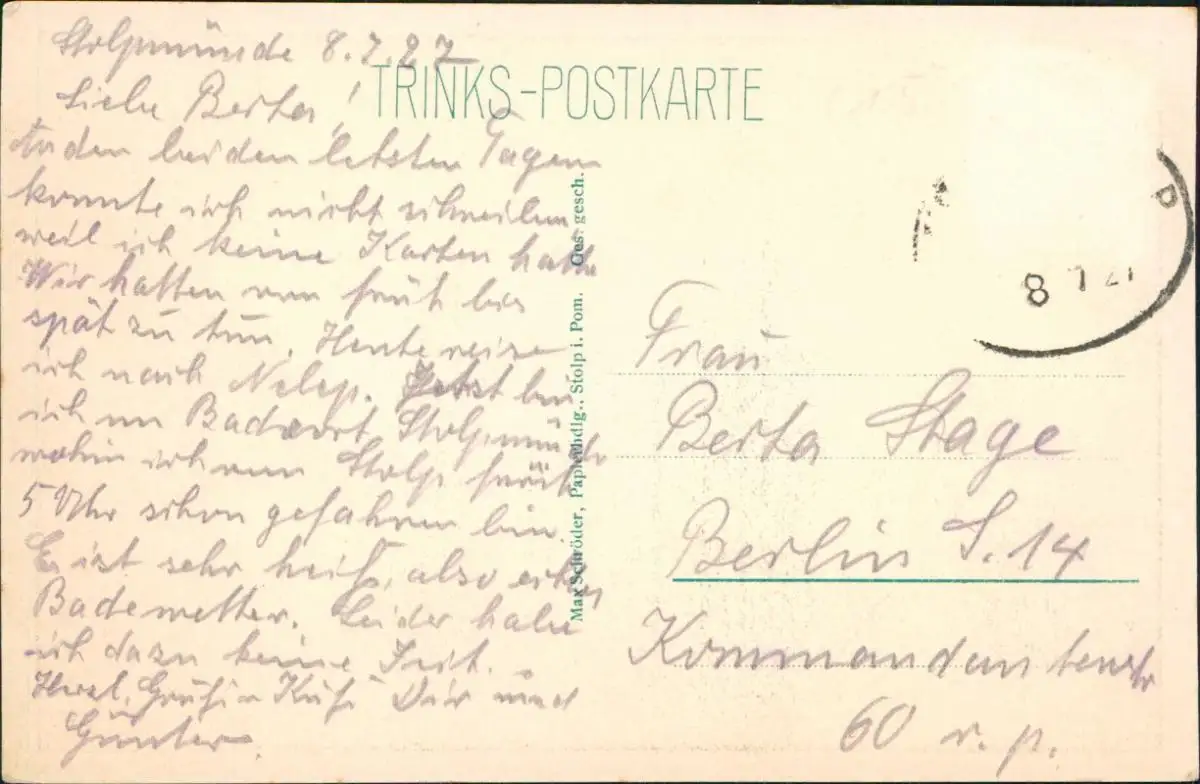 Stolpmünde 8.7.27
TRINKS-POSTKARTE
Liebe Berta!
An den beiden letzten Tagen
konnte ich nicht schreiben
weil ich keine Karten hatte
Wir hatten von früh bis
spät zu tun. Heute reise
ich nach Nelep. Jetzt bin
ich im Badeort Stolpmünde
wohin ich von Stolp früh
5 Uhr schon gefahren bin.
Es ist sehr heiß, also
Badewetter. Leider habe
ich dazu keine Zeit.
Herzl. Gruß u Kuß Dir und
Günter.
Max Schröder, Papierhdlg., Stolp i. Pom. Ges. gesch.
8 7 2
Frau
Berta Stage
Berlin S. 14
Kommandantenstr
60 v. p.